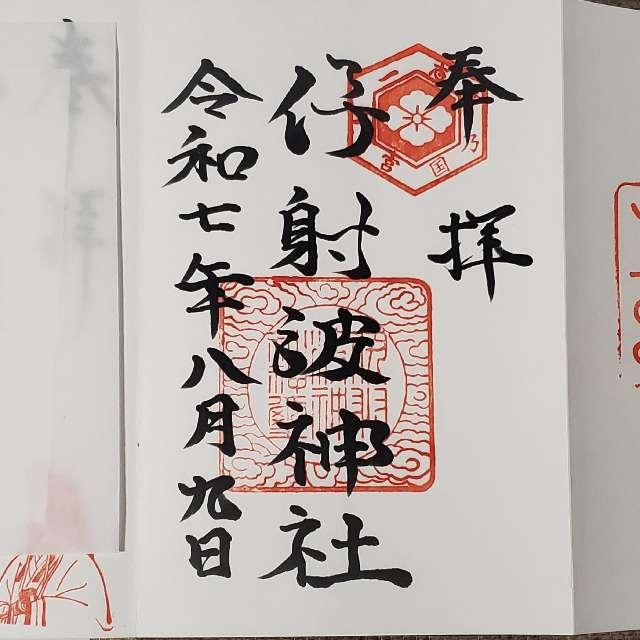 奉拝
伊射波神社
令和七年八月九日